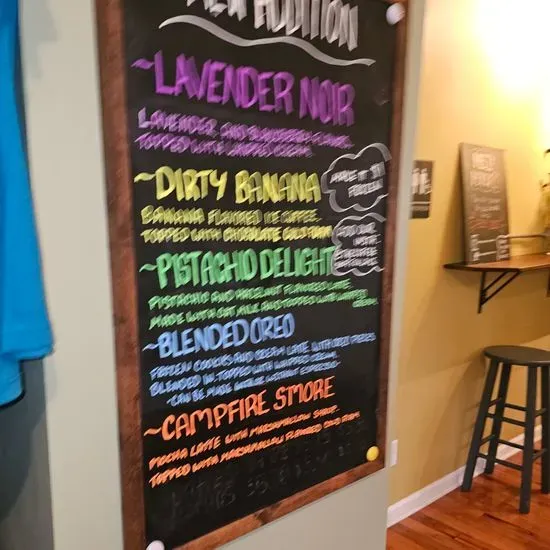 NEW ADDITION
~LAVENDER NOIR
LAVENDER AND
TOPPED WITH WHIPPED CREAM.
~DIRTY BANANA
BANANA FLAVORED ICE COFFEE.
TOPPED WITH CHOCOLATE COLD FOAM
MAKE IT
FROZEN
~PISTACHIO DELIGHT
PISTACHIO AND HAZELNUT FLAVORED LATTE
MADE WITH OAT MILK AND TOPPED WITH WHIPPED
CREAM
~BLENDED OREO
FROZEN COOKIES AND CREAM LATTE WITH OREO PIECES
BLENDED IN. TOPPED WITH WHIPPED CREAM.
ESPRESSO
~CAMPFIRE S'MORE
MOCHA LATTE WITH MARSHMALLOW SYRUP.
TOPPED WITH MARSHMALLOW FLAVORED COLD FOAM